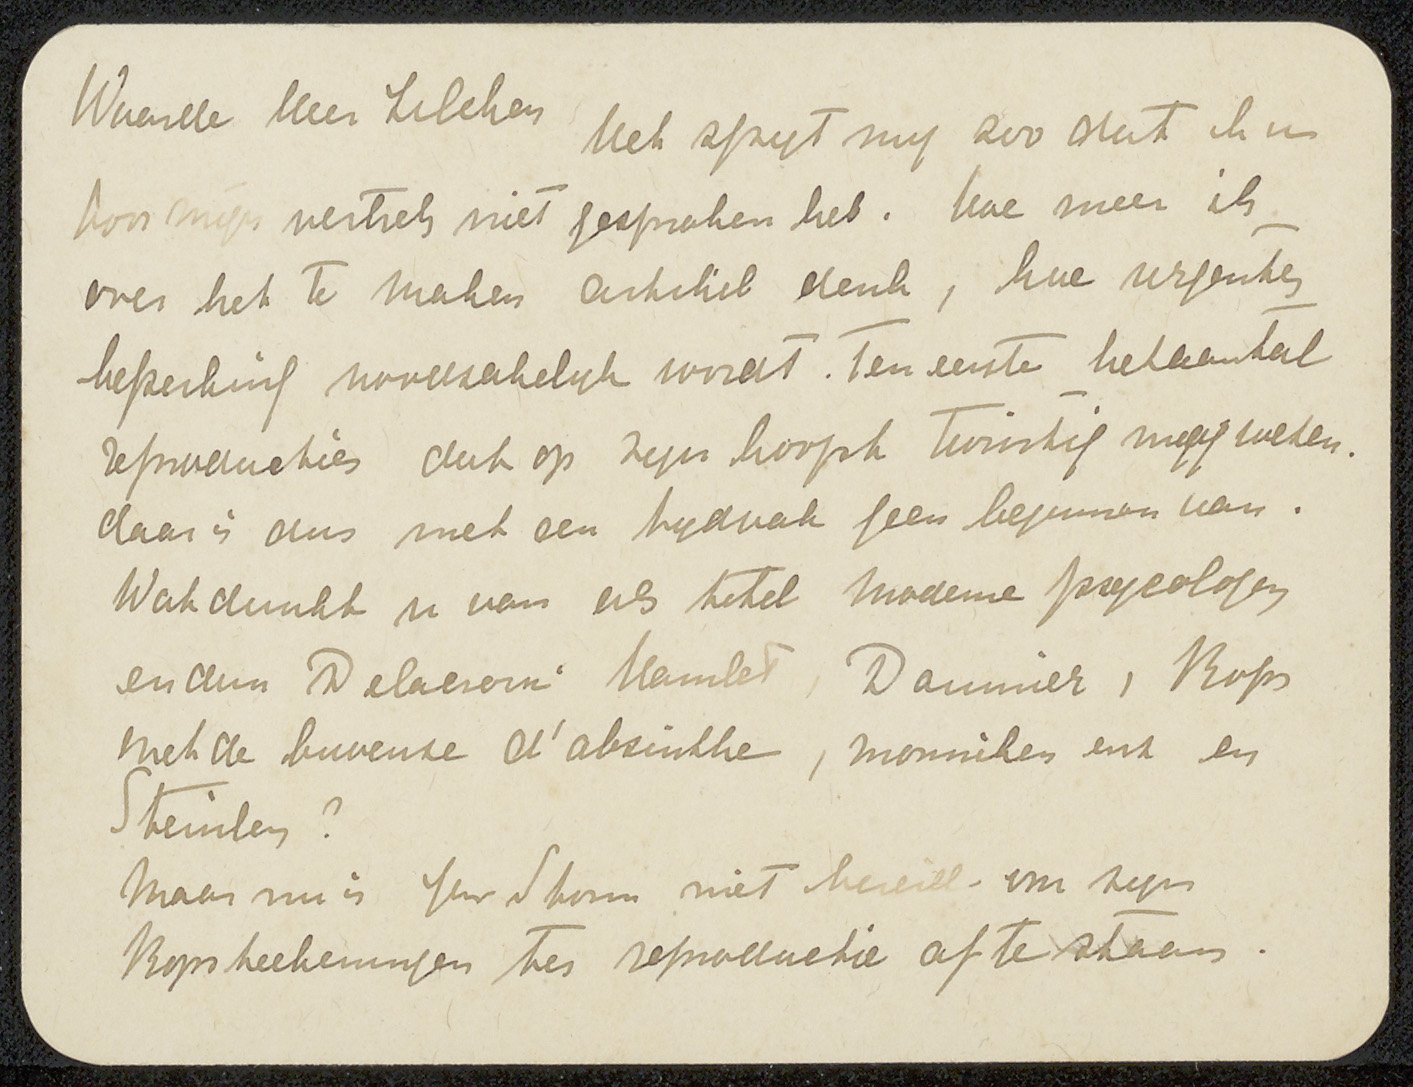 Waarde Heer Zilcken Het spyt my zoo dat ik u
voor myn vertrek niet gesproken heb. Hoe meer ik
over het te maken artikel denk, hoe urgenter
beperking noodzakelyk wordt. Ten eerste het aantal
reproducties dat op zyn hoogst twintig mag wezen.
daar is dus met een tydvak geen beginnen van.
Wat dunkt u van als titel Moderne psycologen
en dan Delacroix Hamlet, Daumier, Rops
met de buveuse d'absinthe, monniken enz en
Steinlen?
Maar nu is Storm niet bereid om zyn
Ropsteekeningen ter reproductie af te staan.